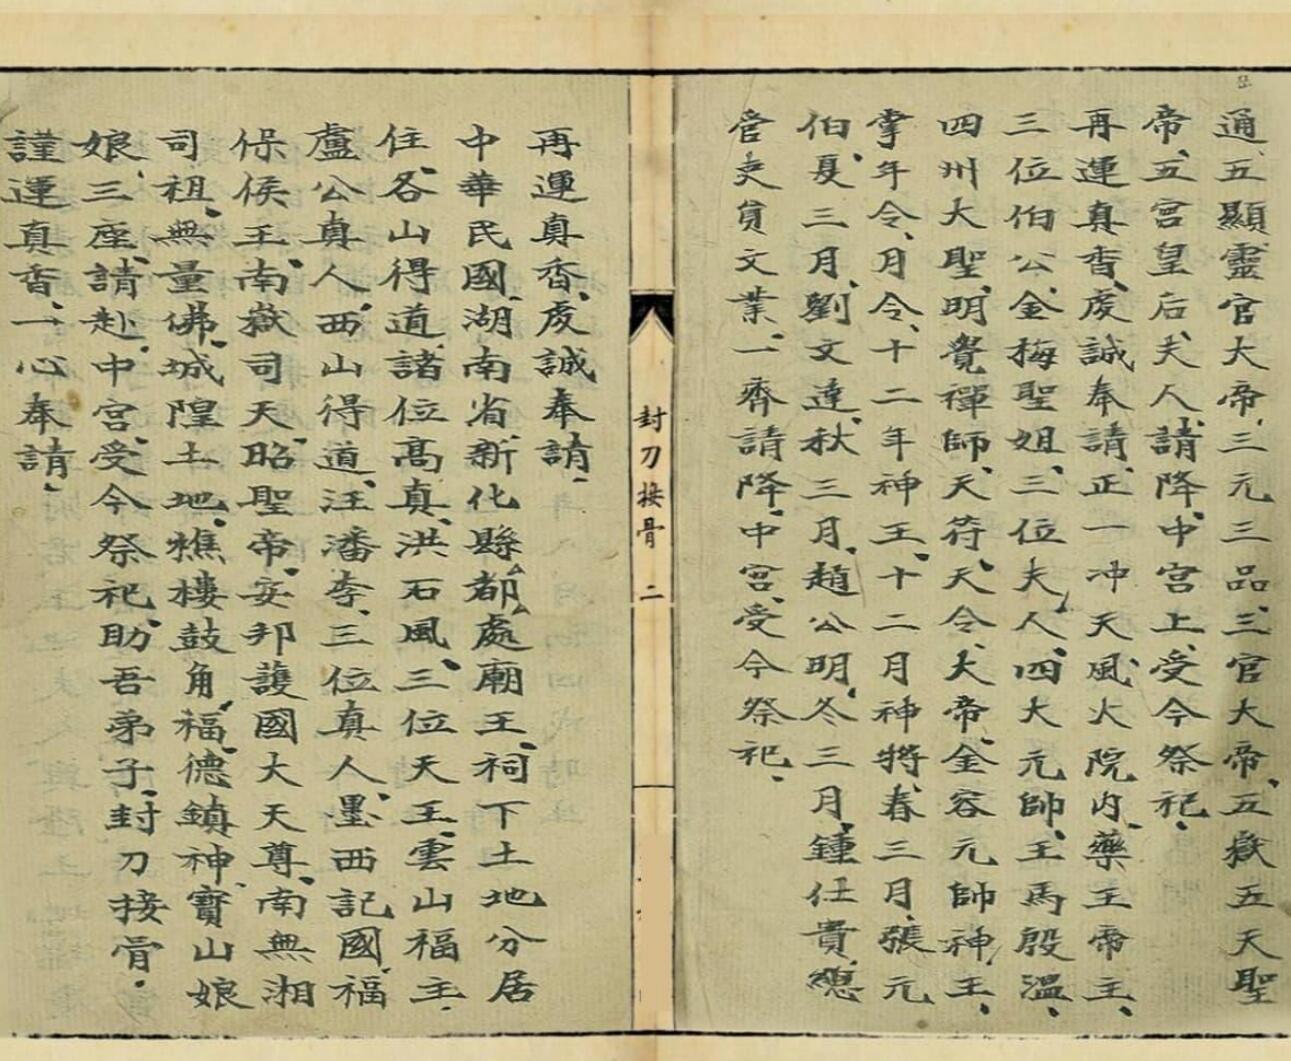 通、五顯靈官大帝、三元三品、三官大帝、五嶽五天聖
帝、五宮皇后、夫人、請降、中宮上、受今祭祀、
再運真香、虔誠奉請、正一冲天風火院内、藥王帝主、
三位伯公、金梅聖姐、三位夫人、四大元帥、王馬殷温、
四州大聖、明覺禪師、天符、天令、大帝、金容元帥神王、
掌年令、月令、十二年神王、十二月神將、春三月、張元
伯、夏三月、劉文達、秋三月、趙公明、冬三月、鍾仕貴、總
管吏貟文業、一齊請降、中宮、受今祭祀、
封刀接骨 二
再運真香、虔誠奉請、
中華民國、湖南省、新化縣、都、處廟王、祠下土地、分居
住、各山得道、諸位高真、洪石風、三位天王、雲山福主、
盧公真人、西山得道、汪潘李、三位真人、墨西記國、福
保侯王、南嶽司天昭聖帝、安邦護國大天尊、南無湘
司祖、無量佛、城隍土地、樵樓鼓角、福德鎮神、寶山娘
娘、三座、請赴、中宮、受今祭祀、助吾弟子、封刀接骨、
謹運真香、一心奉請、